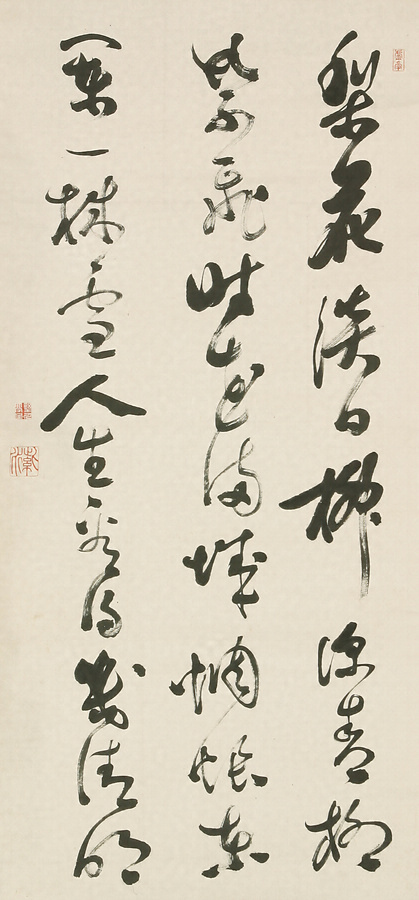 梨花淡白柳深青柳
絮飛時花滿城惆悵東
闌一株雪人生看得幾清明